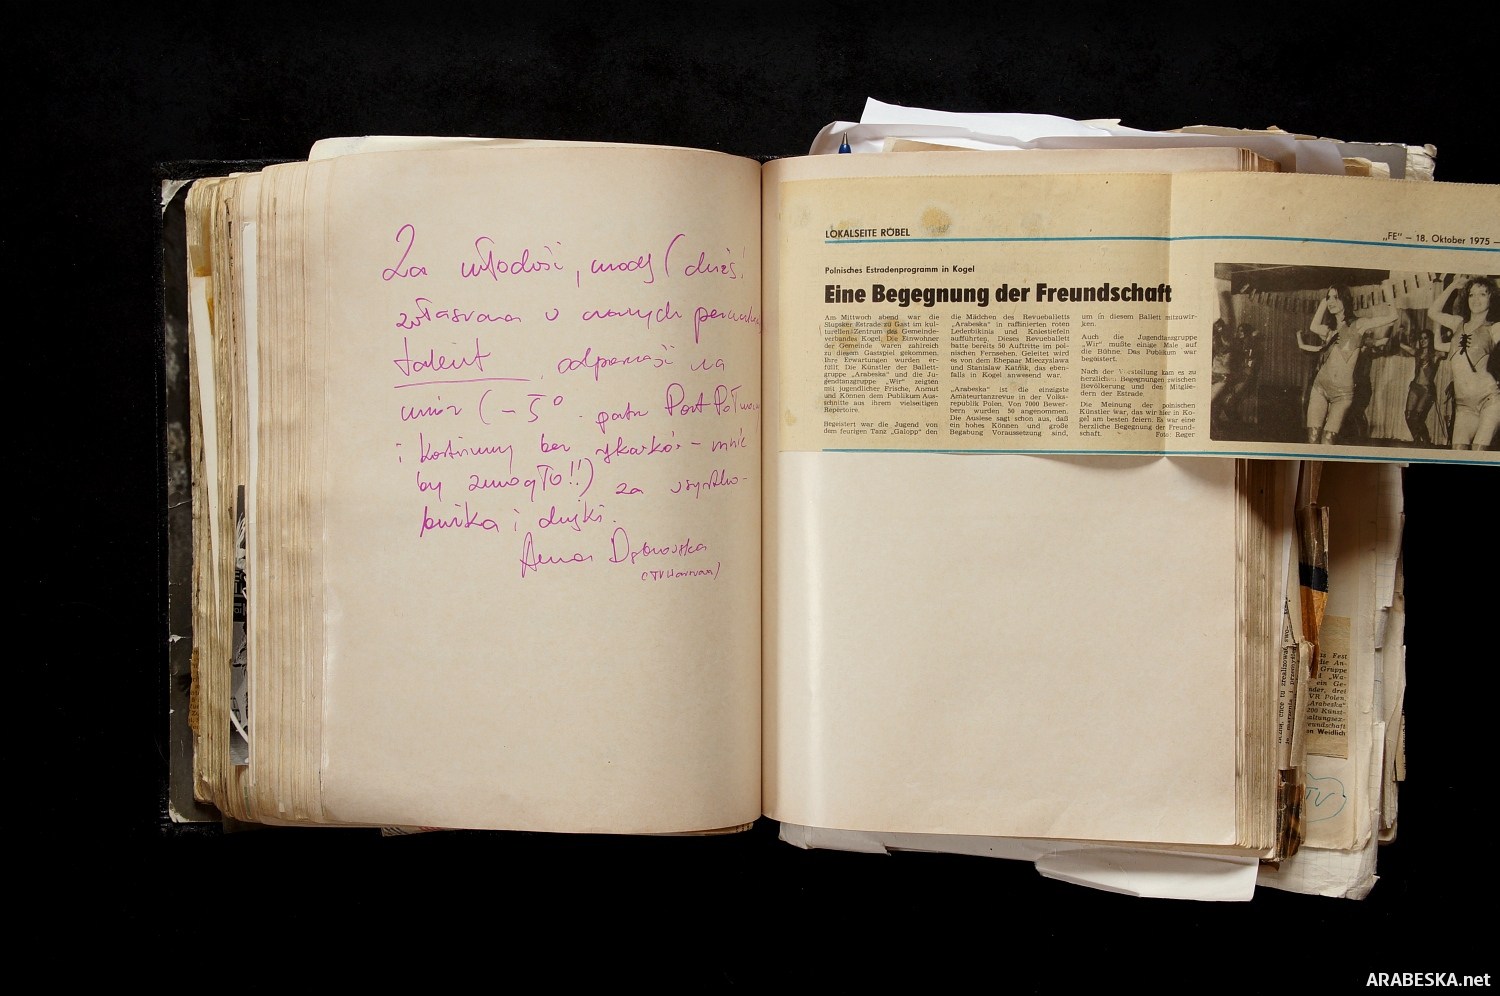 Za młodość, urodę (dziś!
zwłaszcza w czarnych peruka
talent odporność na
mróz (-5° - patrz Port Północny
i kostiumy bez skarków - mnie
by zmogło!!) za wszystko-
buźka i dzięki.
Anna Dąbrowska
(TV Warszawa)
LOKALSEITE RÖBEL
„FE" — 18. Oktober 1975 —
Polnisches Estradenprogramm in Kogel
Eine Begegnung der Freundschaft
Am Mittwoch abend war die
Slupsker Estrade zu Gast im kul-
turellen Zentrum des Gemeinde-
verbandes Kogel. Die Einwohner
der Gemeinde waren zahlreich
zu diesem Gastspiel gekommen.
Ihre Erwartungen wurden er-
füllt. Die Künstler der Ballett-
gruppe „Arabeska" und die Ju-
gendtanzgruppe „Wir" zeigten
mit jugendlicher Frische, Anmut
und Können dem Publikum Aus-
schnitte aus ihrem vielseitigen
Repertoire.
Begeistert war die Jugend von
dem feurigen Tanz „Galopp" den
die Mädchen des Revueballetts
„Arabeska" in raffinierten roten
Lederbikinis und Kniestiefeln
aufführten. Dieses Revueballett
hatte bereits 50 Auftritte im pol-
nischen Fernsehen. Geleitet wird
es von dem Ehepaar Mieczyslawa
und Stanislaw Katnik, das eben-
falls in Kogel anwesend war.
„Arabeska" ist die einzigste
Amateurtanzrevue in der Volks-
republik Polen. Von 7000 Bewer-
bern wurden 50 angenommen.
Die Auslese sagt schon aus, daß
ein hohes Können und große
Begabung Voraussetzung sind,
um in diesem Ballett mitzuwir-
ken.
Auch die Jugendtanzgruppe
„Wir" mußte einige Male auf
die Bühne. Das Publikum war
begeistert.
Nach der Vorstellung kam es zu
herzlichen Begegnungen zwischen
Bevölkerung und den Mitglie-
dern der Estrade.
Die Meinung der polnischen
Künstler war, das wir hier in Ko-
gel am besten feiern. Es war eine
herzliche Begegnung der Freund-
schaft. Foto: Reger
Fest
die An-
Gruppe
„Wa-
ein Ge-
nder, drei
VR Polen,
„Arabeska"
200 Künst-
altungsez-
eundschaft
en Weidlich
TV
ARABESKA.net